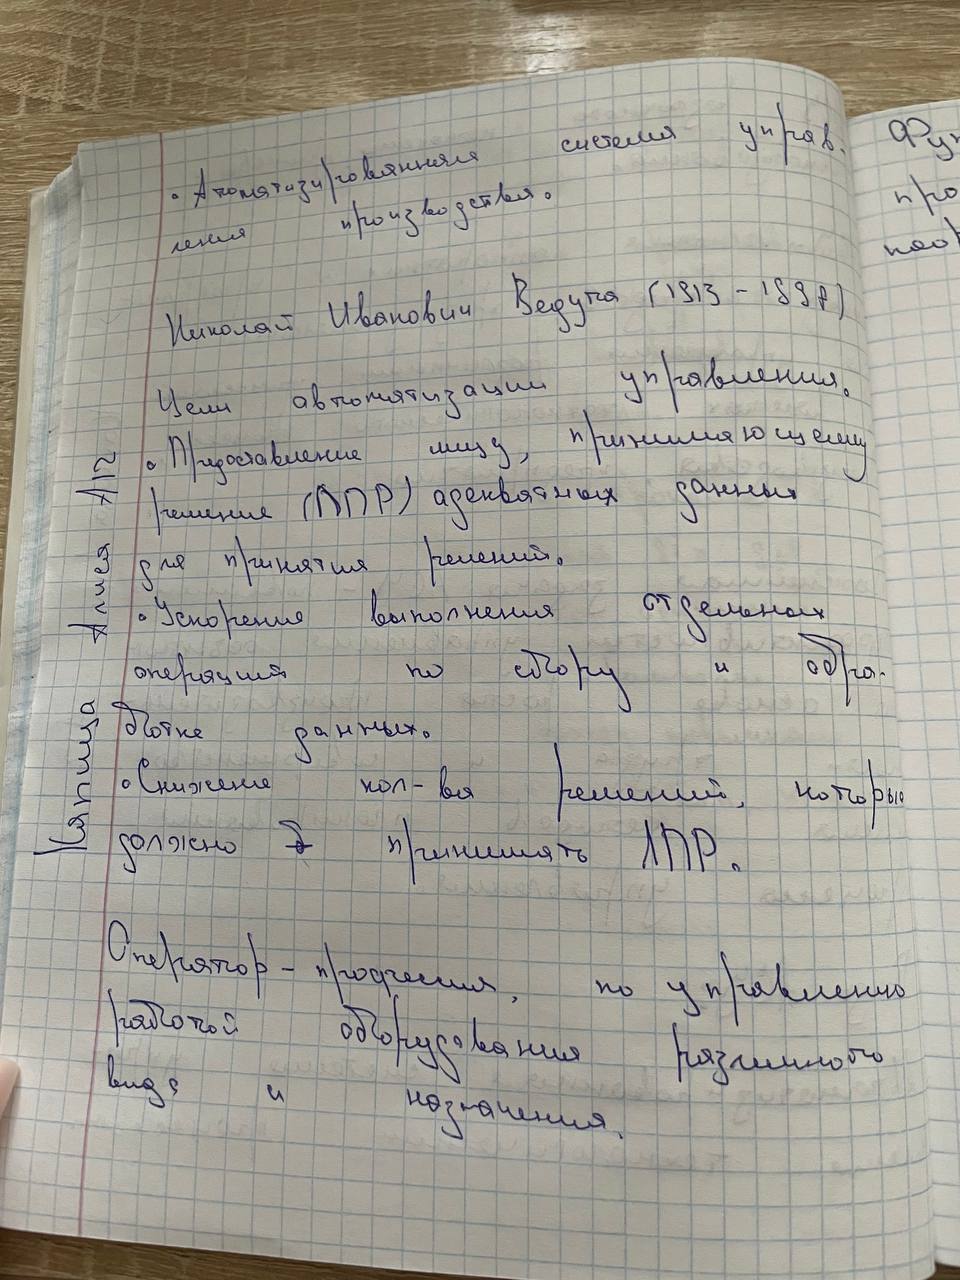 • Атоматизированная система управ.
ления производства.
Николай Иванович Ведута (1913-1998)
Цели автоматизации управления.
• Предоставление лицу, принимающему
решение (ЛПР) адекватных данных
для принятия решений.
• Ускорение выполнения отдельных
операций по сбору и обра-
ботке данных.
• Снижение кол-ва решений, которые
должно принимать ЛПР.
Оператор - профессия, по управлению
работой оборудования различного
вида и назначения.
Капица Алиса А12
Фун
про